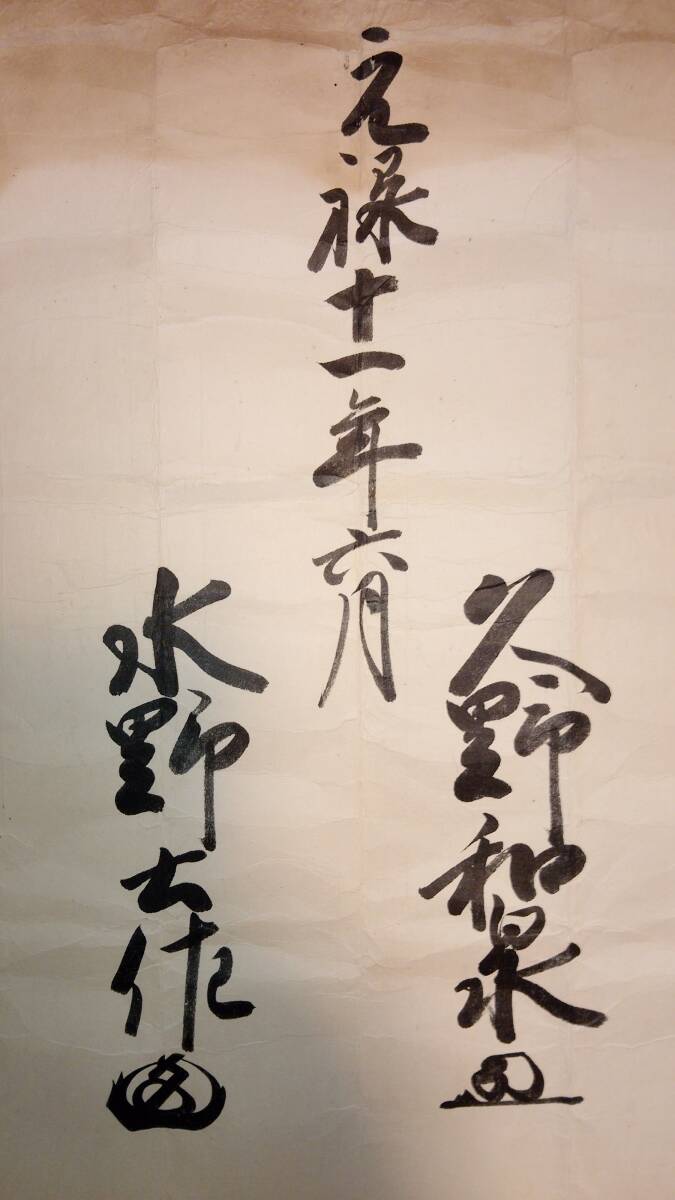 元禄十一年六月
久野和泉
水野